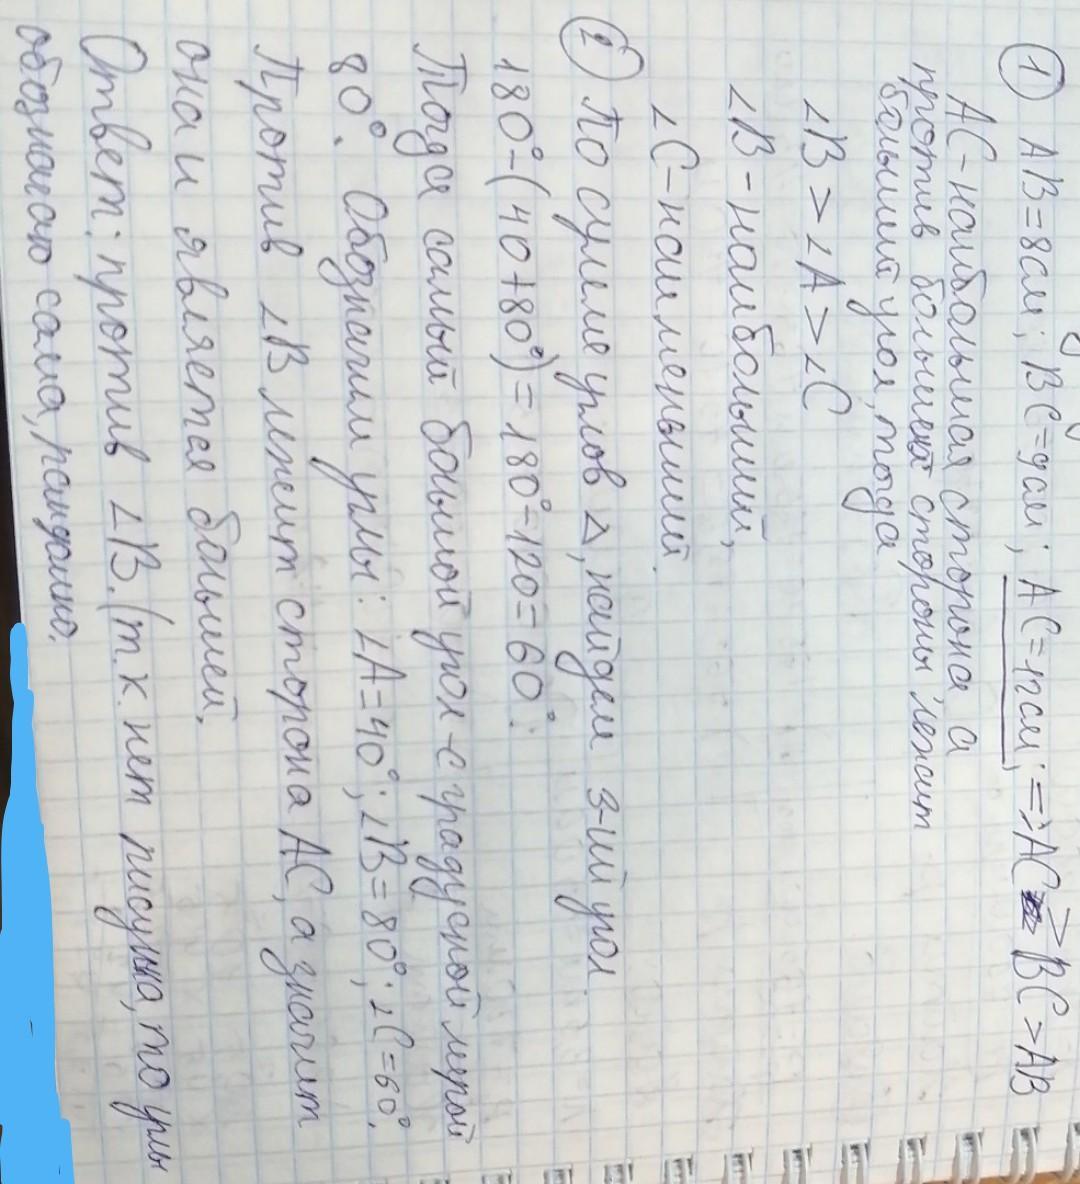 ① AB=8см; BC=9см; AC=12см; => AC > BC > AB
AC - наибольшая сторона а
против большей стороны лежит
больший угол, тогда
∠B > ∠A > ∠C
∠B - наибольший,
∠C - наименьший.
② По сумме углов △, найдем 3-ий угол.
180° - (40 + 80°) = 180° - 120 = 60°.
Тогда самый большой угол - с градусной мерой
80°. Обозначим углы: ∠A = 40°; ∠B = 80°; ∠C = 60°.
Против ∠B лежит сторона AC, а значит
она и является большей.
Ответ: против ∠B. (т.к. нет рисунка, то углы
обозначаю сама, рандомно.